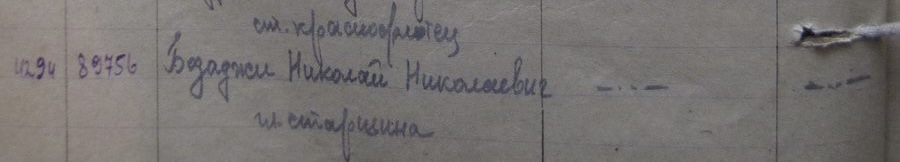 ст. краснофлотец
4294 89756 Бозаджи Николай Николаевич —..— —..—
гл старшина